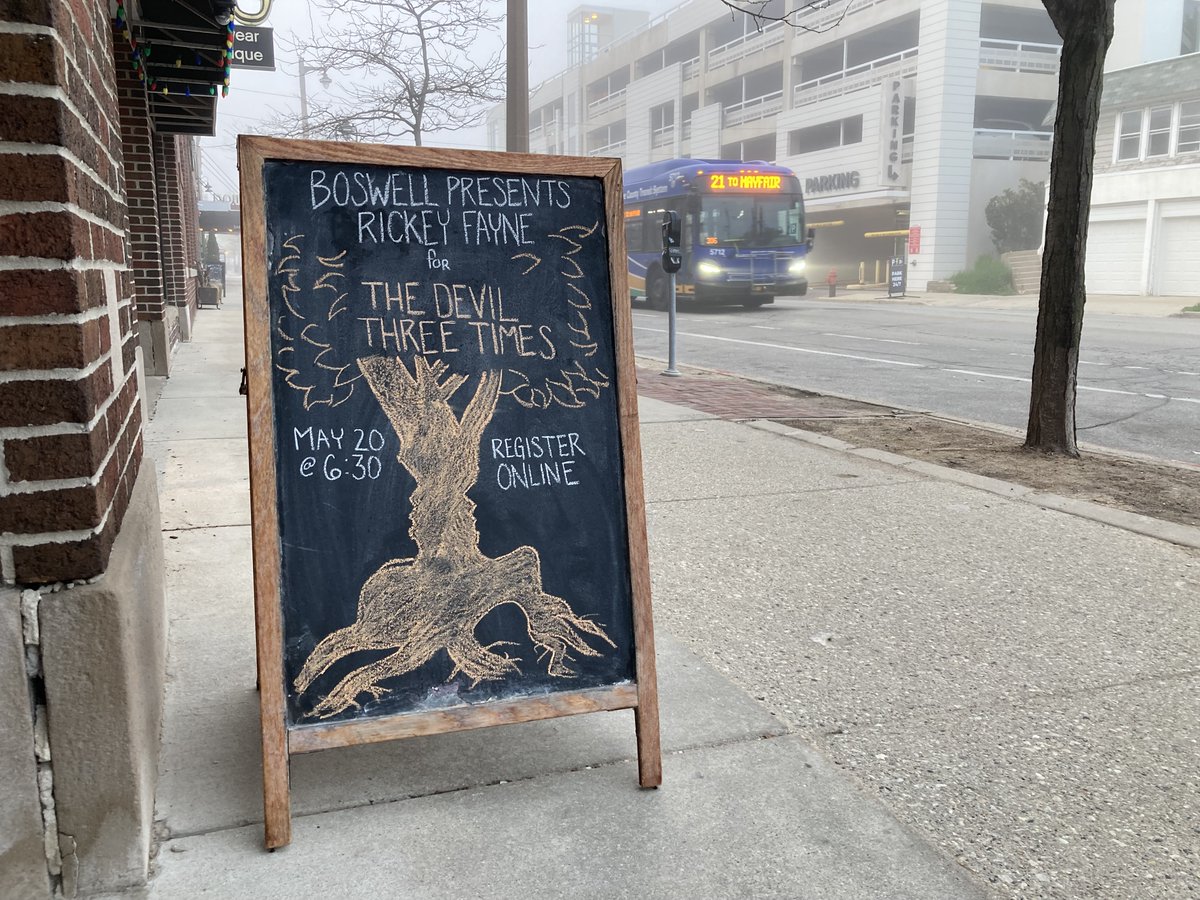 BOSWELL PRESENTS
RICKEY FAYNE
for
THE DEVIL
THREE TIMES
MAY 20
@ 6:30
REGISTER
ONLINE
21 TO MAYFAIR
County Transit System
5712
PARKING
PARKING